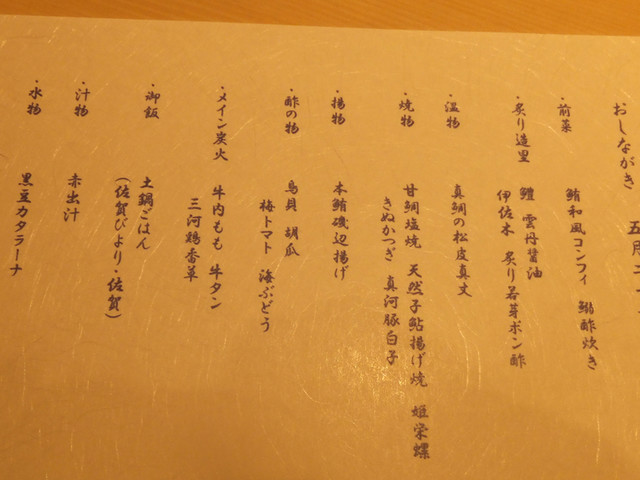 おしながき 五月二十
・前菜 鮪和風コンフィ 鰯酢炊き
・炙り造里 鱧 雲丹醤油
伊佐木 炙り若芽ポン酢
・温物 真鯛の松皮真丈
・焼物 甘鯛塩焼 天然子鮎揚げ焼 姫栄螺
きぬかつぎ 真河豚白子
・揚物 本鮪磯辺揚げ
・酢の物 鳥貝 胡瓜
梅トマト 海ぶどう
・メイン炭火 牛内もも 牛タン
三河鶏香草
・御飯 土鍋ごはん
(佐賀びより・佐賀)
・汁物 赤出汁
・水物 黒豆カタラーナ